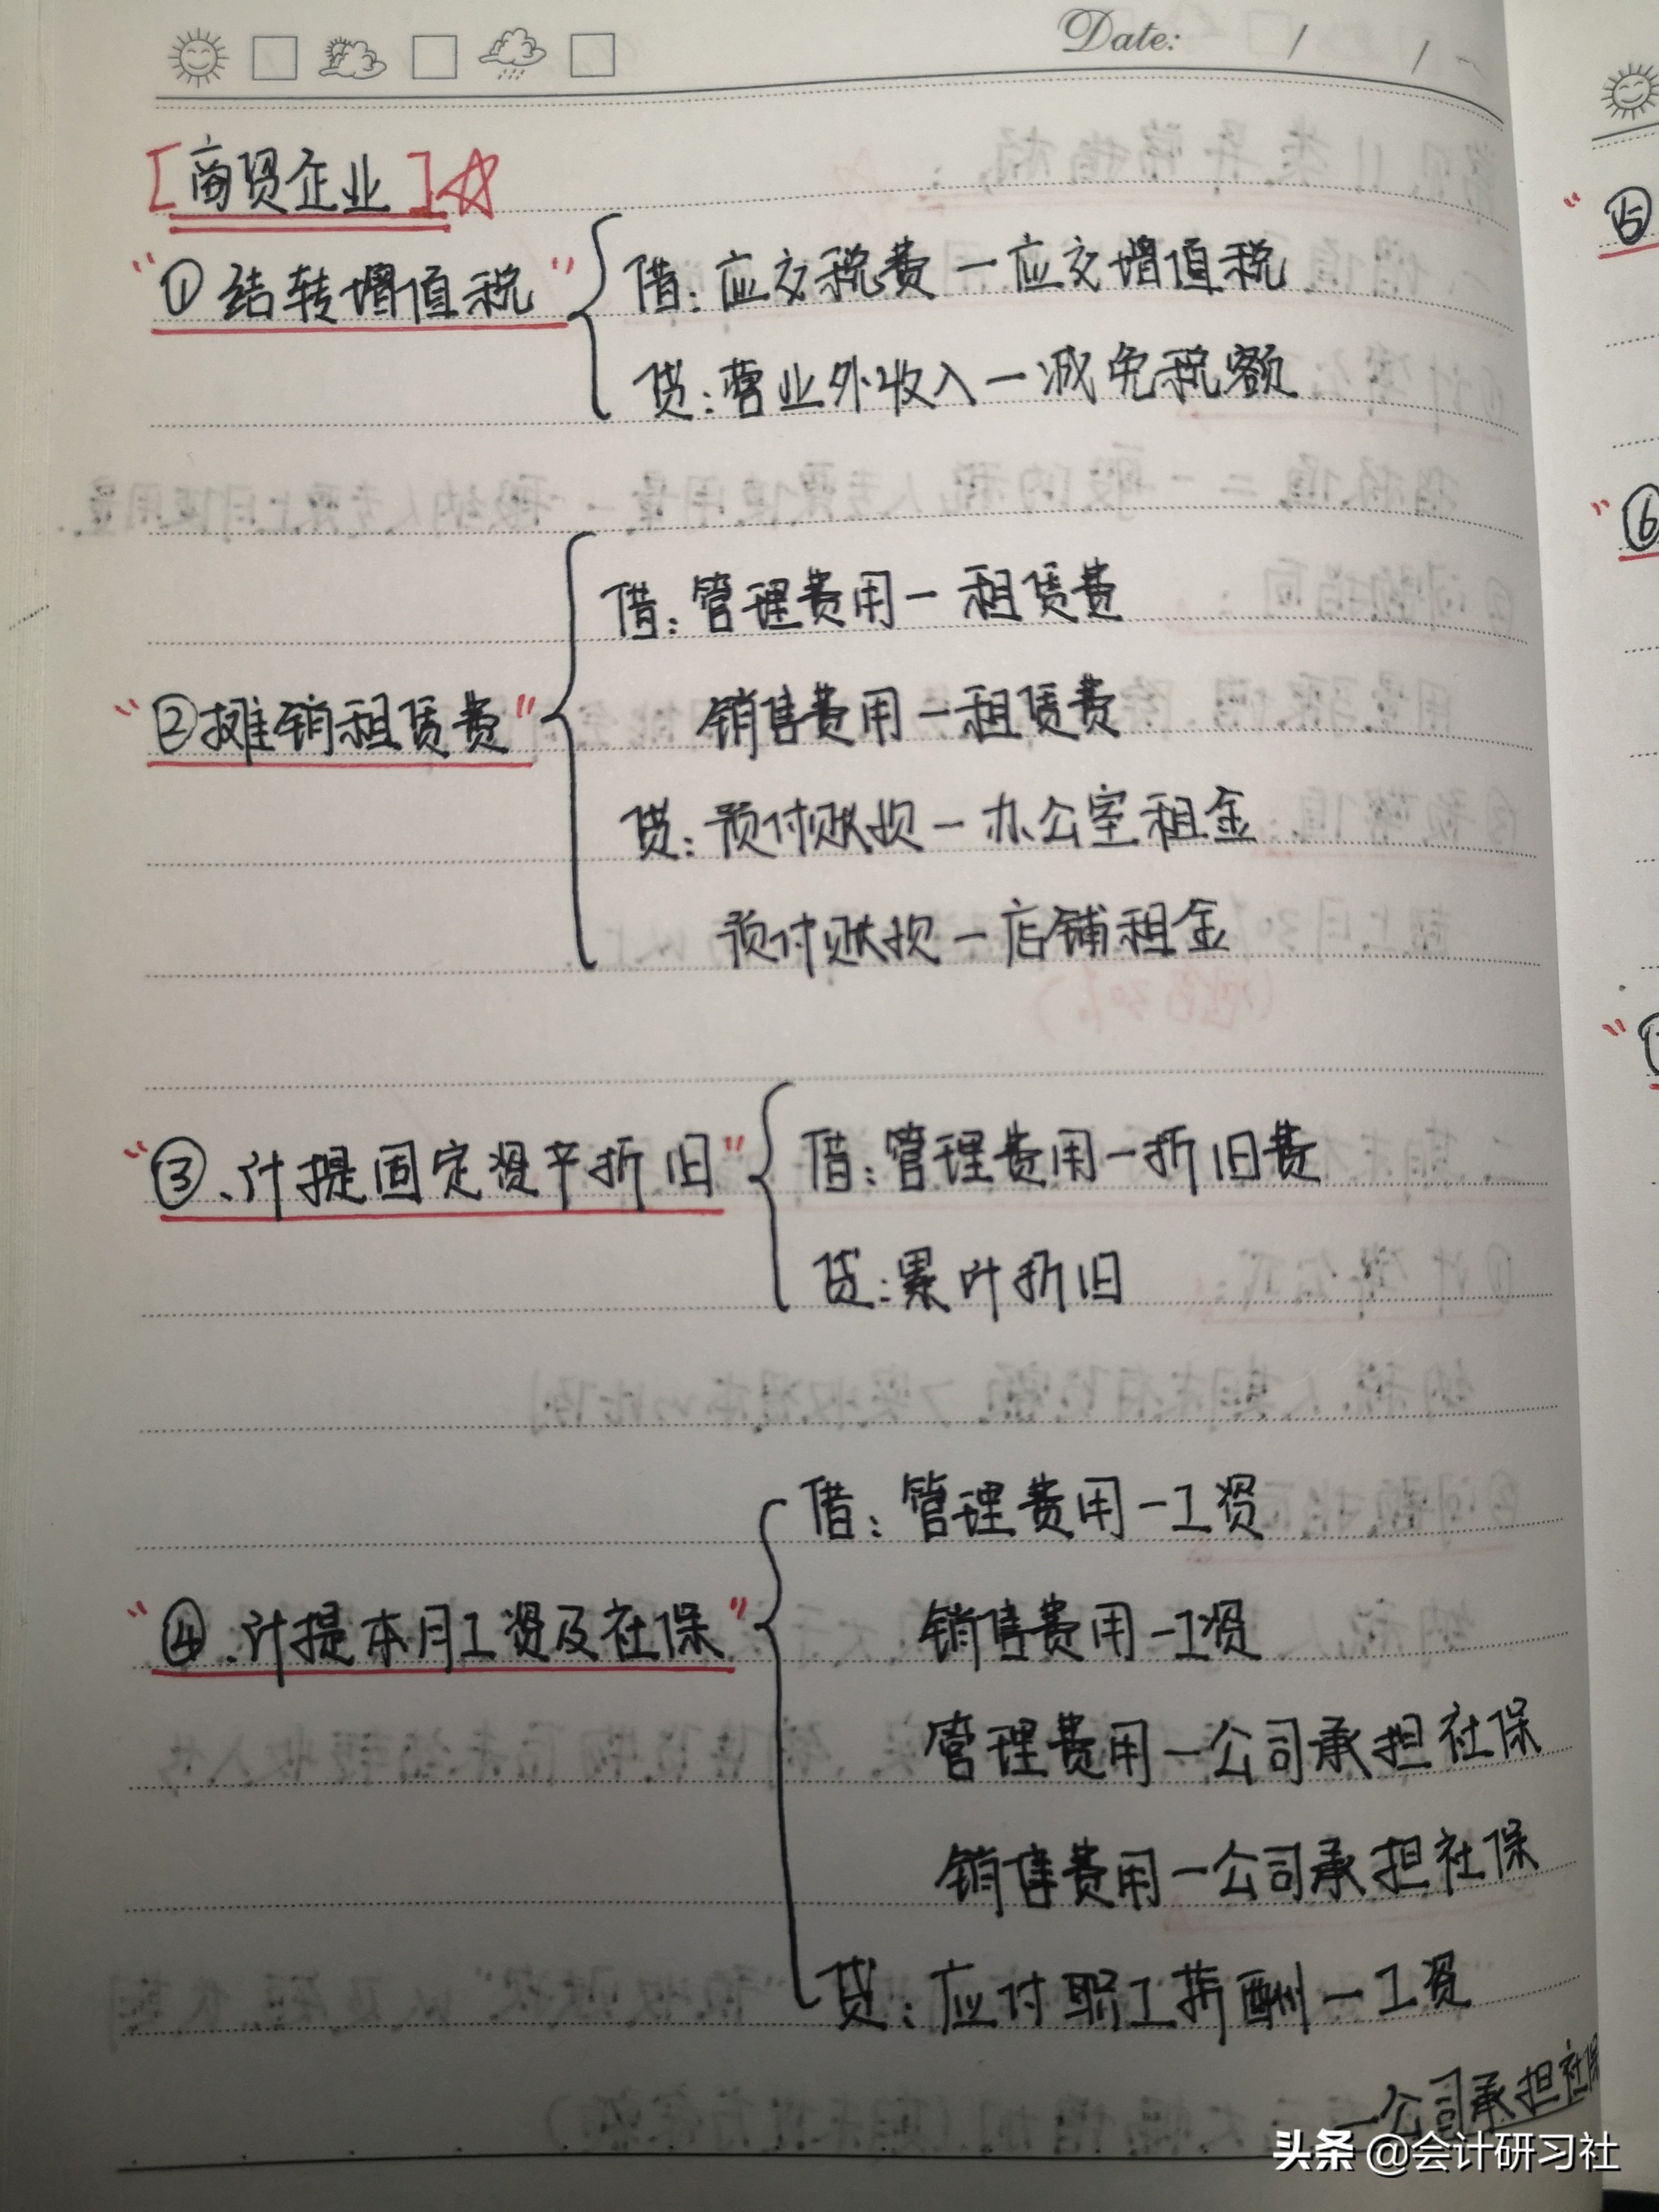 Date: / /
[商贸企业]☆
"①结转增值税"
借:应交税费—应交增值税
贷:营业外收入—减免税额
"②摊销租赁费"
借:管理费用—租赁费
销售费用—租赁费
贷:预付账款—办公室租金
预付账款—店铺租金
"③、计提固定资产折旧"
借:管理费用—折旧费
贷:累计折旧
"④、计提本月工资及社保"
借:管理费用—工资
销售费用—工资
管理费用—公司承担社保
销售费用—公司承担社保
贷:应付职工薪酬—工资
—公司承担社保
"⑤
"⑥
头条 @会计研习社